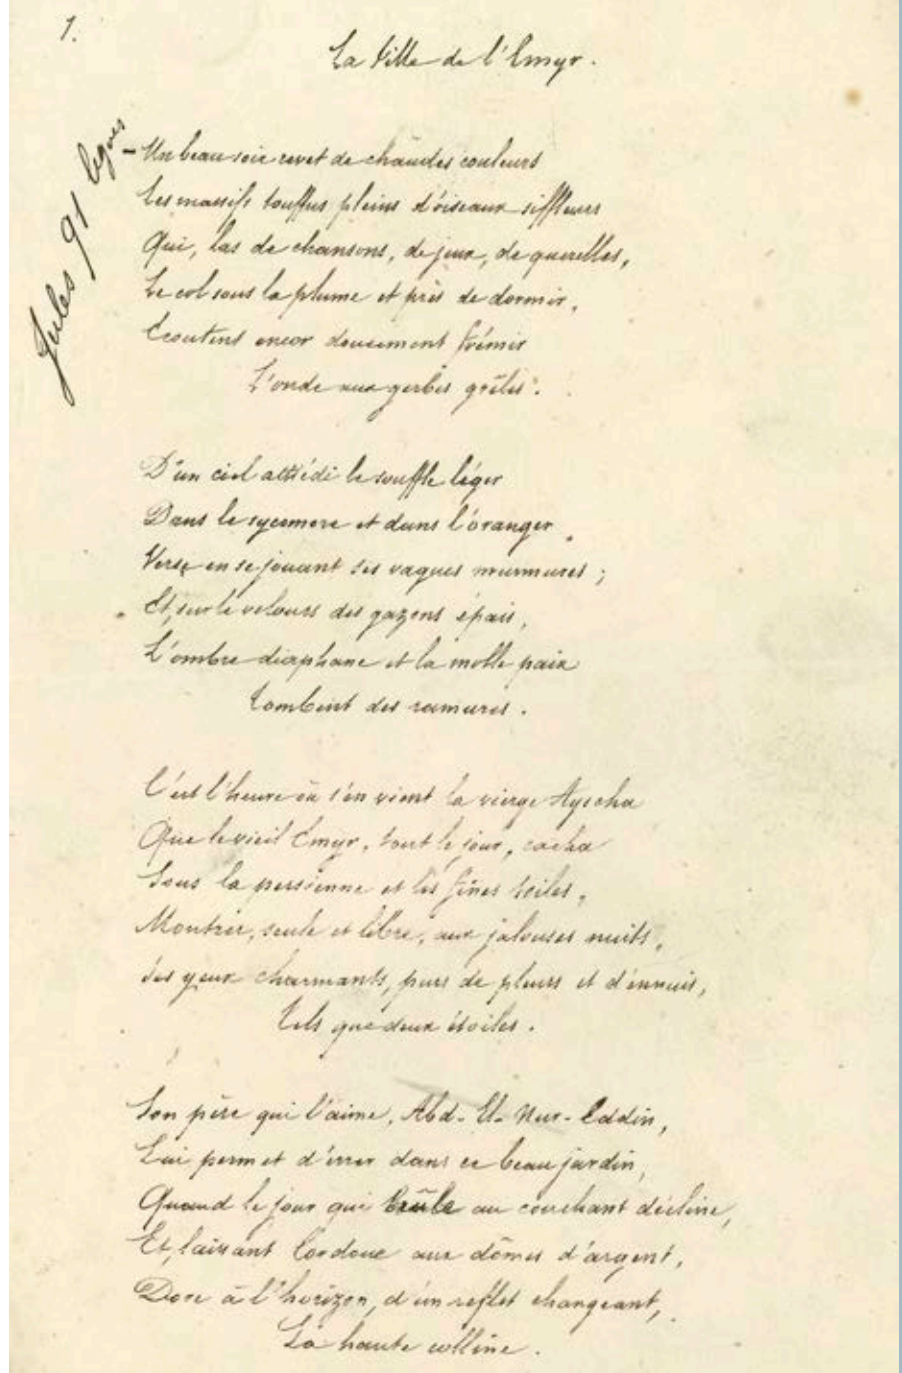 1.
La Fille de l'Emyr.
Jules 91 lignes
- Un beau soir revet de chaudes couleurs
Les massifs touffus pleins d'oiseaux siffleurs
Qui, las de chansons, de jeux, de querelles,
Le col sous la plume et près de dormir,
Écoutent encor doucement frémir
L'onde aux gerbes grêles.
D'un ciel attiédi le souffle léger
Dans le sycomore et dans l'oranger
Verse en se jouant ses vagues murmures ;
Et, sur le velours des gazons épais,
L'ombre diaphane et la molle paix
Tombent des ramures.
C'est l'heure où s'en vient la vierge Ayscha
Que le vieil Emyr, tout le jour, cacha
Sous la persienne et les fines toiles,
Montrer, seule et libre, aux jalouses nuits,
Ses yeux charmants, purs de pleurs et d'ennuis,
Tels que deux étoiles.
Son père qui l'aime, Abd-El-Nur-Eddin,
Lui permet d'errer dans ce beau jardin,
Quand le jour qui brûle au couchant décline,
Et, laissant Cordoue aux dômes d'argent,
Dore à l'horizon, d'un reflet changeant,
La haute colline.